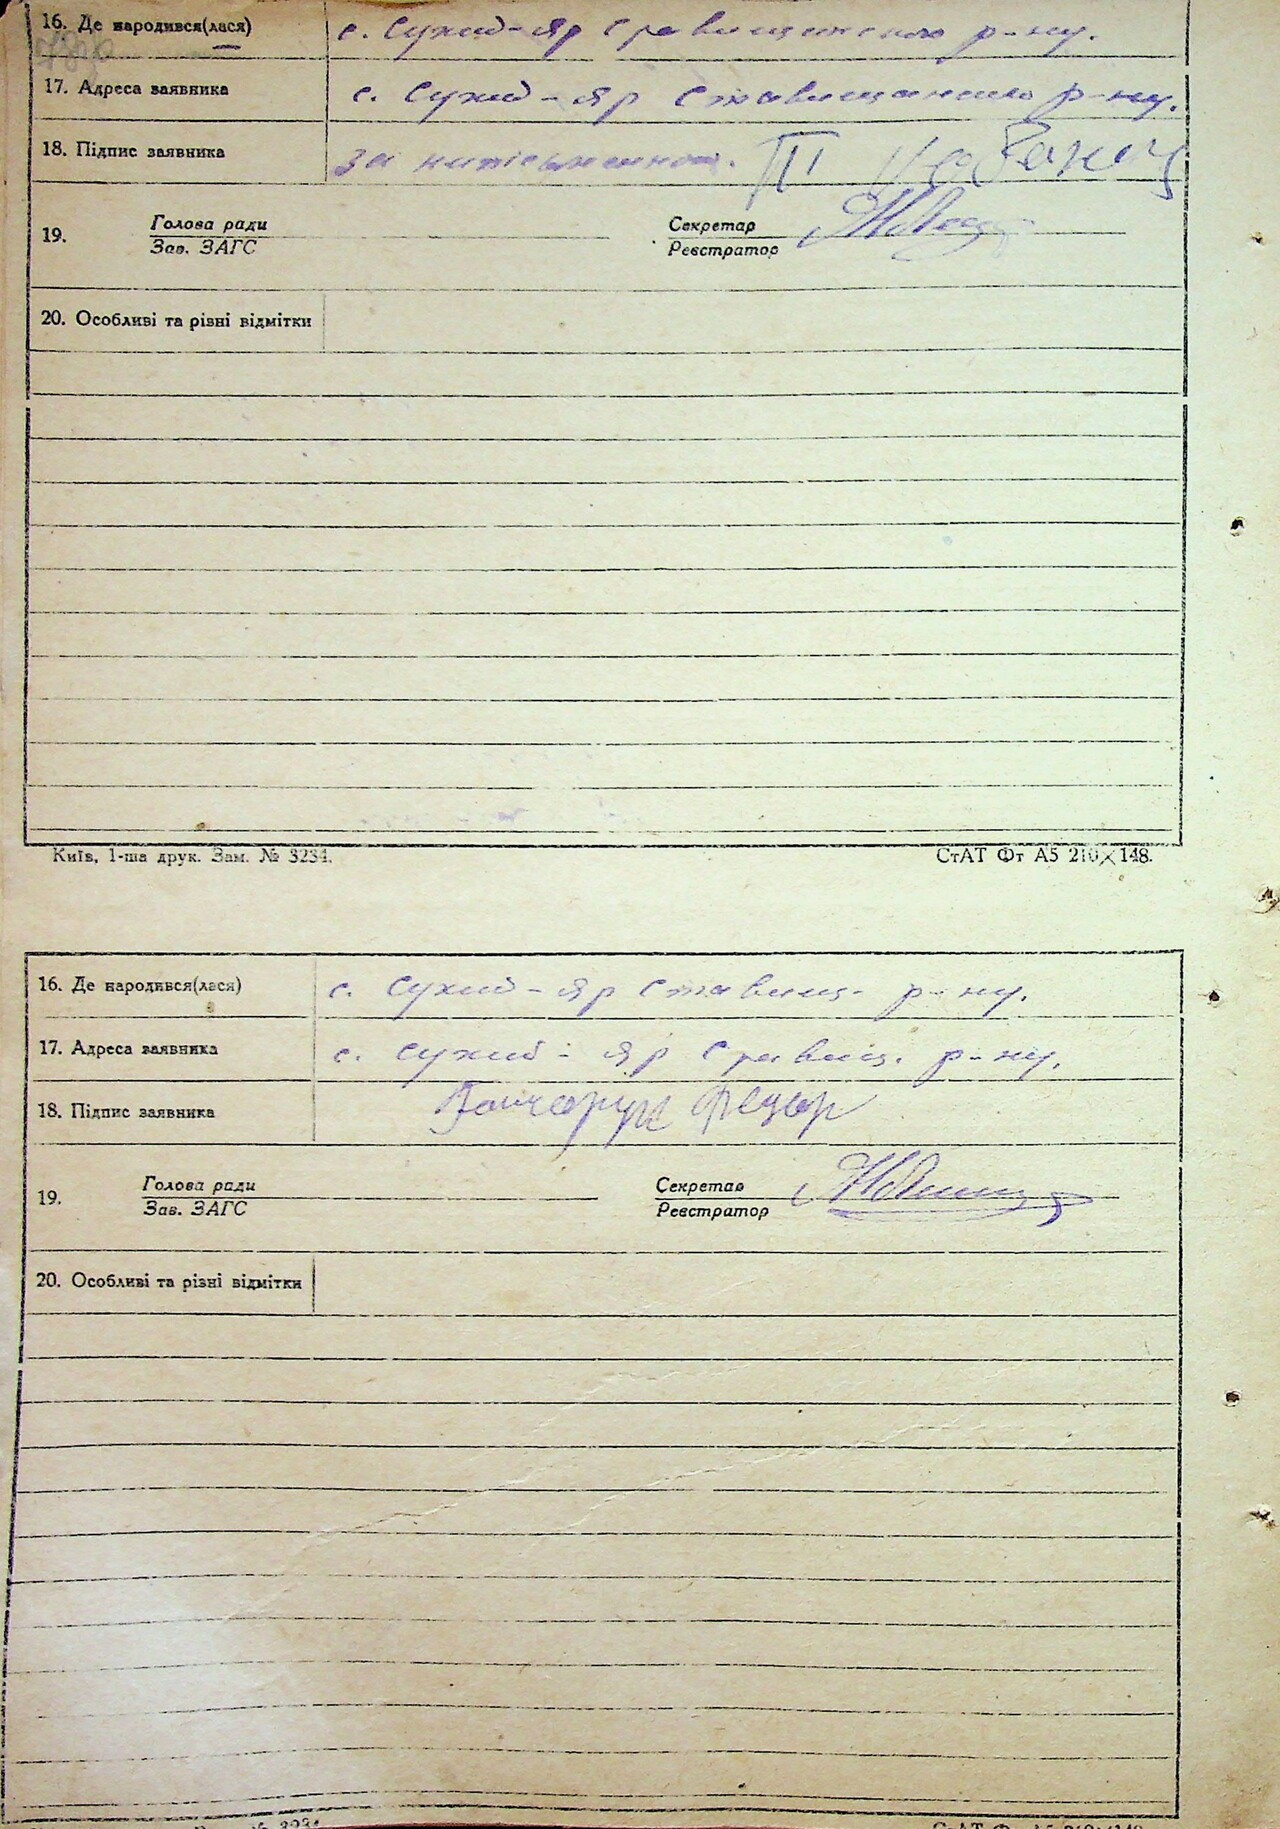 16. Де народився(лася) с. Сухий-Яр Ставищенского р-ну.
17. Адреса заявника с. Сухий-Яр Ставищанського р-ну.
18. Підпис заявника за
19. Голова ради Секретар
Зав. ЗАГС Реєстратор
20. Особливі та різні відмітки
Київ, 1-ша друк. Зам. № 3234. СтАТ Фт А5 210×148.
16. Де народився(лася) с. Сухий-Яр Ставищ. р-ну.
17. Адреса заявника с. Сухий-Яр Ставищ. р-ну.
18. Підпис заявника Гончарук Федор
19. Голова ради Секретар
Зав. ЗАГС Реєстратор
20. Особливі та різні відмітки